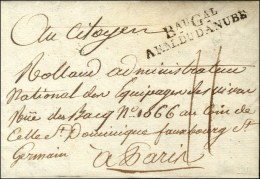 Au Citoyen
Bau Gal
ARM. DU DANUBE
Rolland administrateur
National des Equipages des vivres
Rüe du Bacq No. 1666 au Coin de
Celle St. Dominique fauxbourg St.
Germain
à Paris